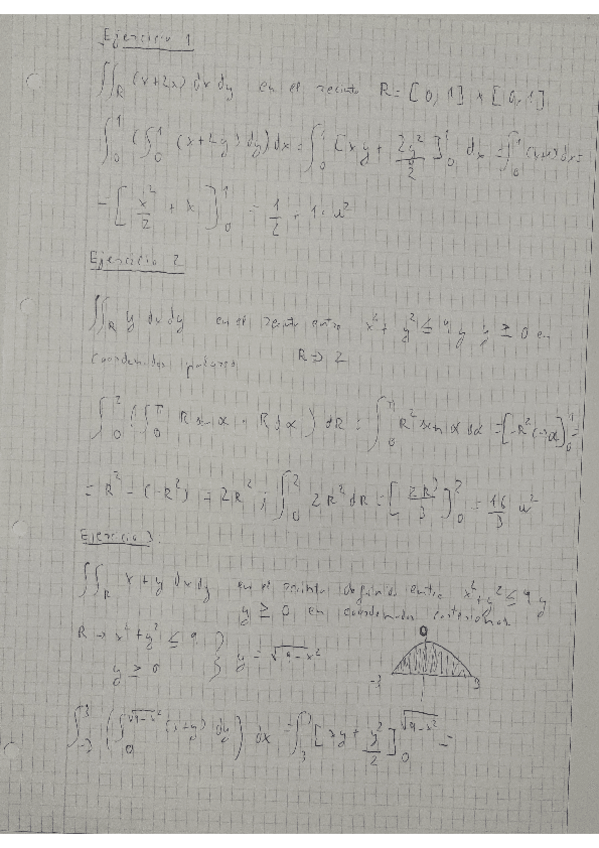 Ejercicio 1
∬_R (x+2x) dx dy en el recinto R = [0,1] x [0,1]
∫_0^1 (∫_0^1 (x+2y) dy) dx = ∫_0^1 [xy + 2y²/2]_0^1 dx = ∫_0^1 (x+1) dx =
= [x²/2 + x]_0^1 = 1/2 + 1 u²
Ejercicio 2
∬_R y dx dy en el recinto entre x² + y² ≤ 4 y y ≥ 0 en
coordenadas polares R → 2
∫_0^2 (∫_0^π R sen α · R dα) dR = ∫_0^π R² sen α dα = [-R² cos α]_0^π =
= R² - (-R²) = 2R² ; ∫_0^2 2R² dR = [2R³/3]_0^2 = 16/3 u²
Ejercicio 3
∬_R x + y dx dy en el recinto definido entre x² + y² ≤ 9 y
y ≥ 0 en coordenadas
R → x² + y² ≤ 9
y ≥ 0 } y = √(9-x²)
0
-3 3
∫_{-3}^3 (∫_0^{√(9-x²)} (x+y) dy) dx = ∫_3 [xy + y²/2]_0^{√(9-x²)} =